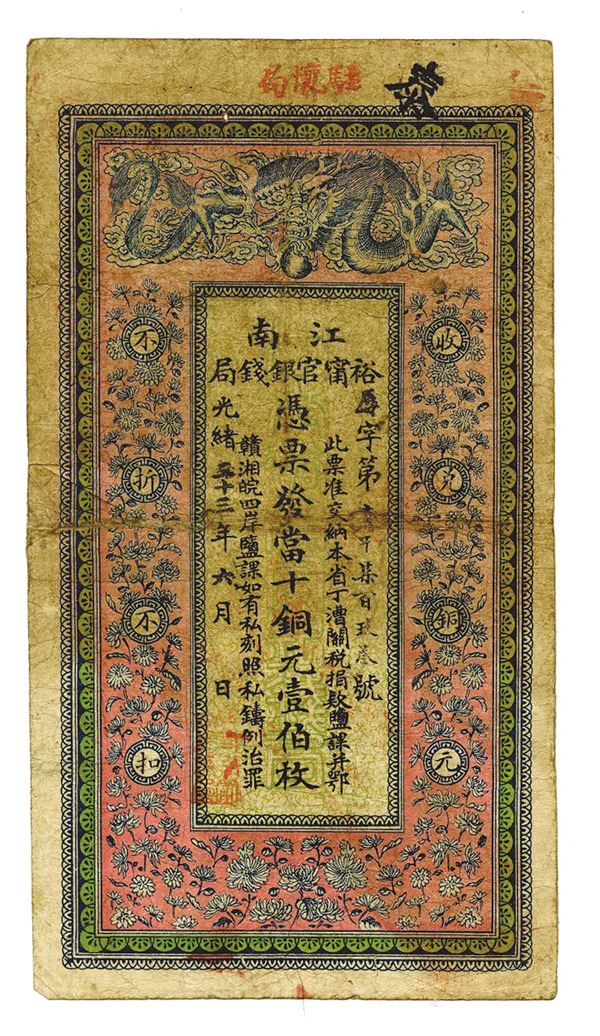 駐懷局
江南
裕甯官銀錢局
字第千柒百玖號
此票准交納本省丁漕關稅捐欵鹽課并鄂
憑票發當十銅元壹佰枚
贛湘皖四岸鹽課如有私刻照私鑄例治罪
光緒三十三年六月 日
收兌銅元
不折不扣